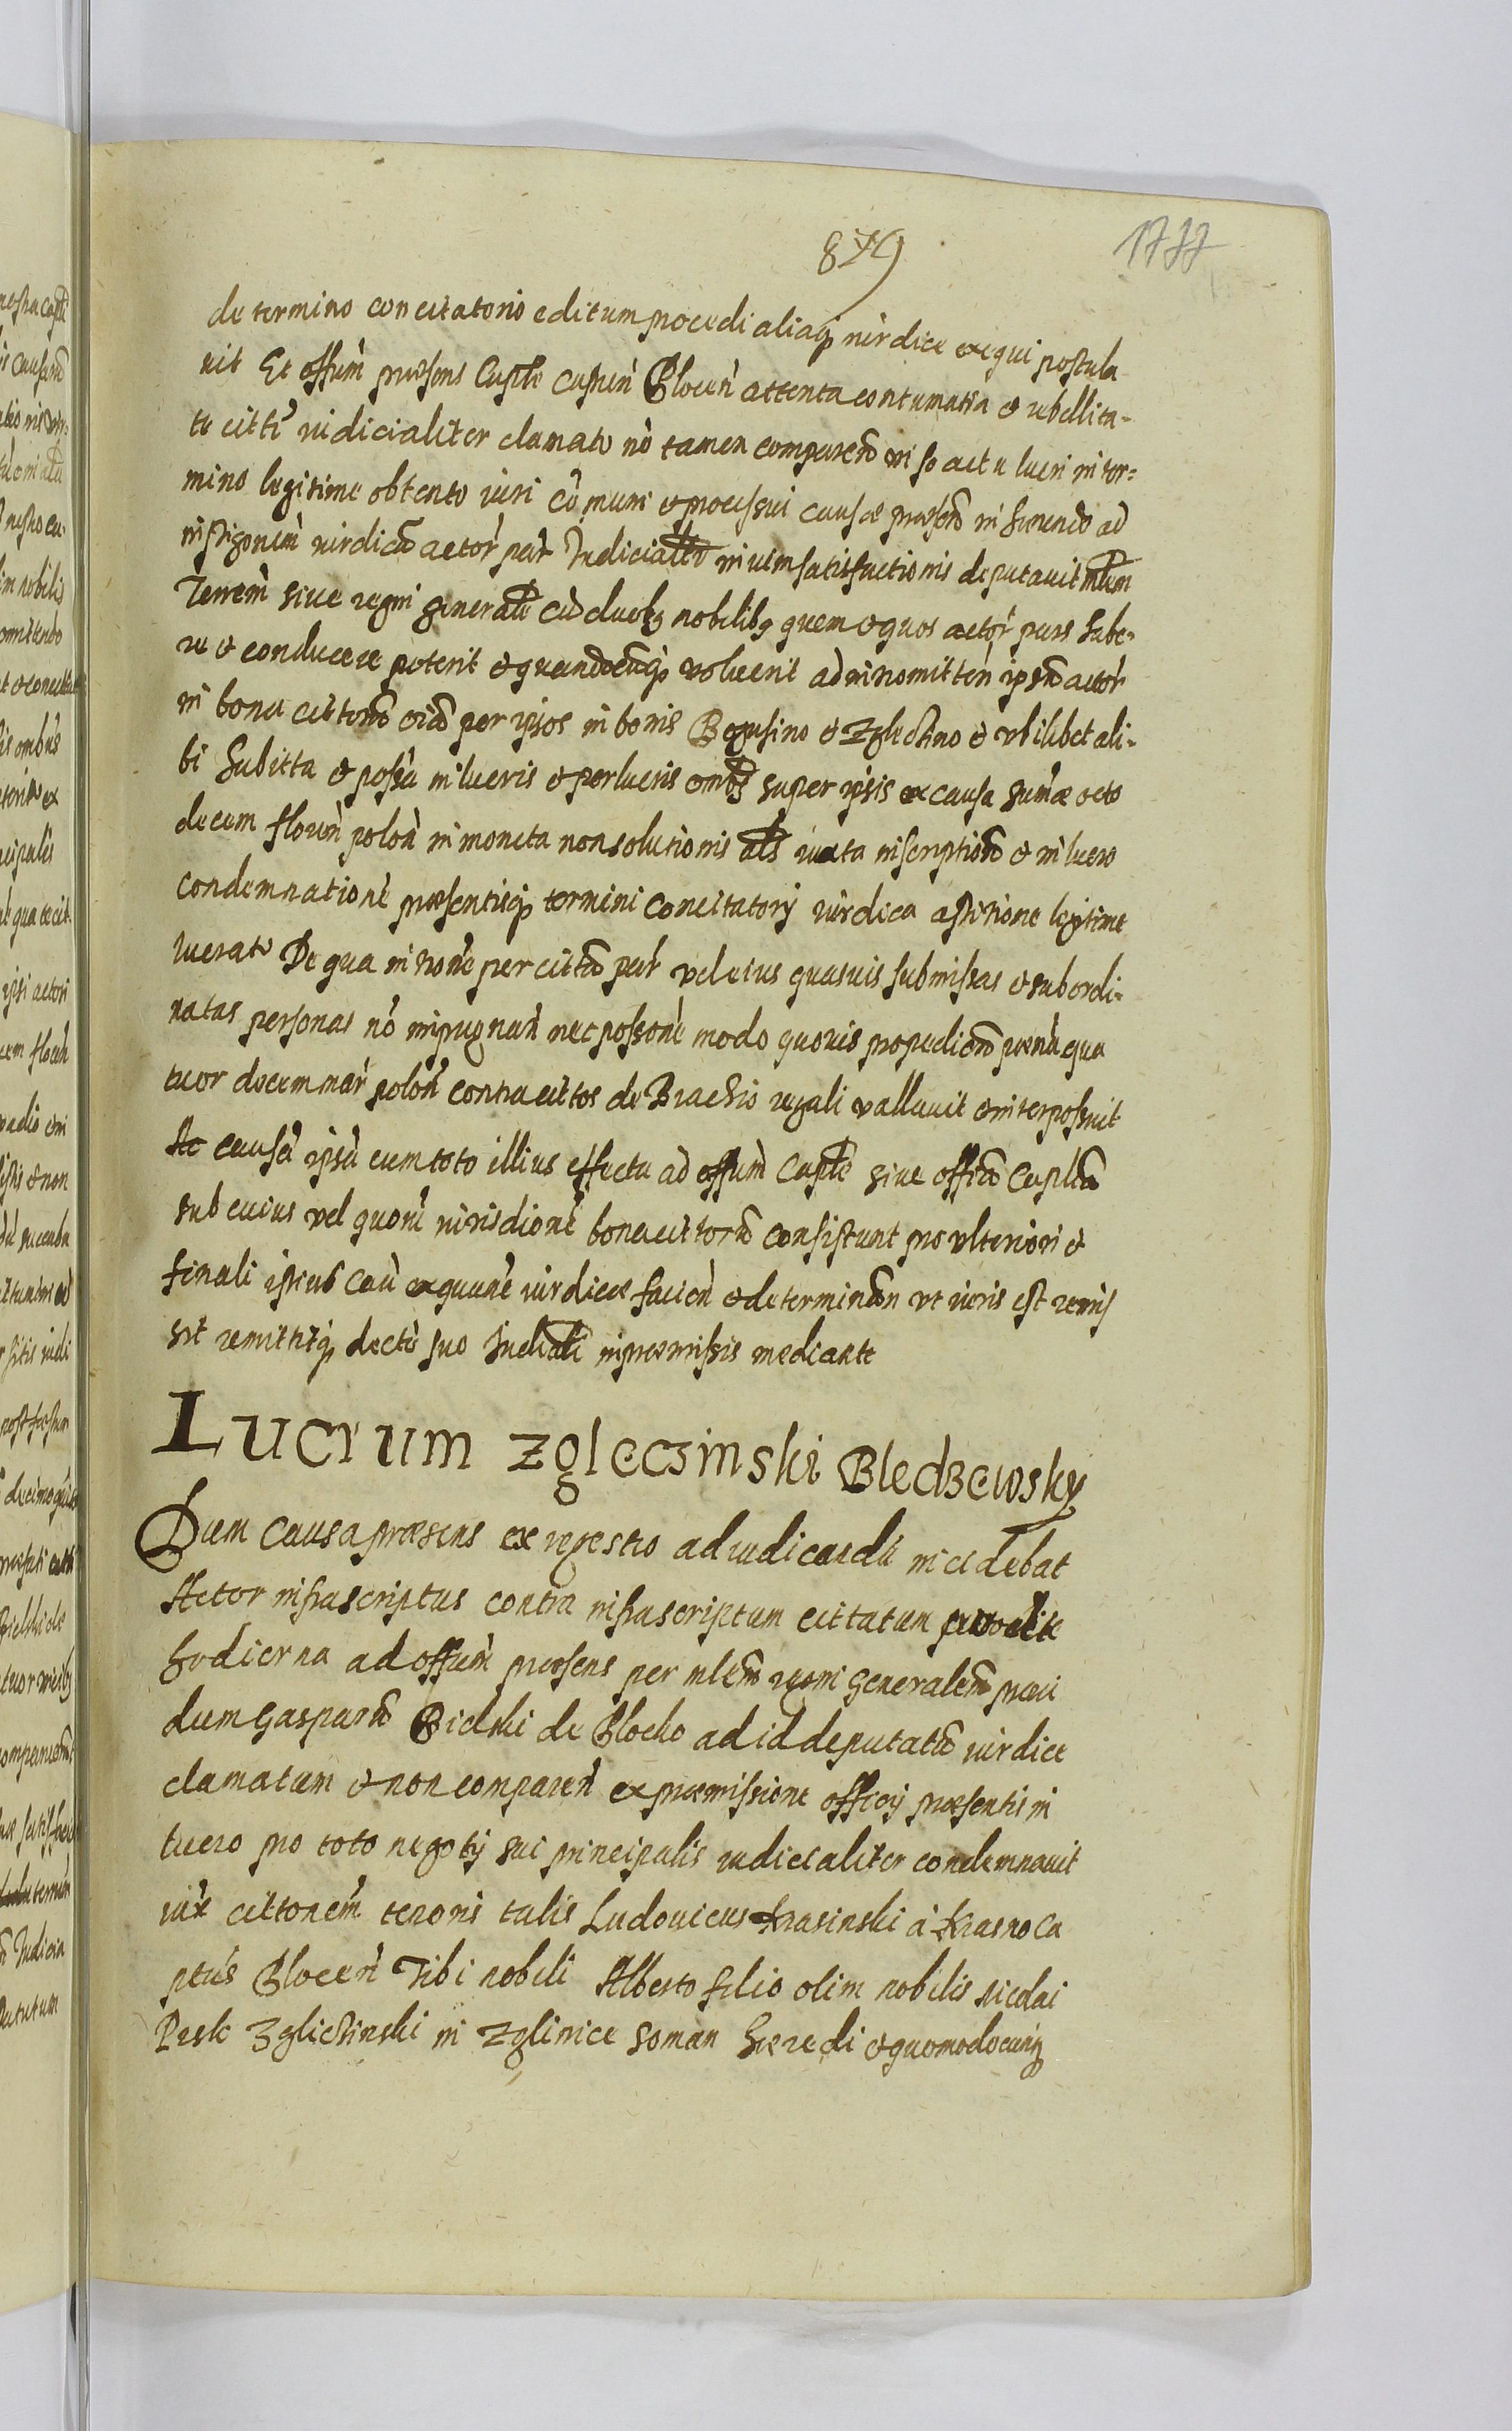 879
1777
de termino concitatorio editum procedi aliaq iurdice exequi postula
uit Et offum præsens Caple castren Plocen attenta contumatia et rebellita-
te citti iudicialiter clamato no tamen comparen in so actu lucri in ter=
mino legitime obtento iuri co muni et processui causæ præsen inherendo ad
instigonem iurdica actor par Judicialr in vim satisfactionis deputauit mlem
Terrem siue regni generale cu duobq nobilibq quem et quos actor pars habe-
re et conducere poterit et quandocuq voluerit ad intromitten ipsum actor
in bona cittorum per ipsos in bonis Bogusino et Zglechno et vbilibet ali-
bi habitta et possa in lucris et perlucris ombq super ipsis ex causa sumæ octo
decem floren polon in moneta non solutionis als iuxta inscriptione et in lucro
condemnatione præsentisq termini concitatorij iurdica astitione legitime
lucrato De qua introne per cittu par vel eius quasuis submissas et subordi-
natas personas no impugnan nec possone modo quouis propedien poena qua
tuor decem mar polon contra cittos de Brachio regali vallauit et interpossuit
Ac causa ipsa cum toto illius effectu ad offum Caple siue officia Caplia
sub cuius vel quoru iurisdione bona cittoru consistunt pro vlteriori et
finali istius cau exequone iurdice facien et determinan vt iuris est remis
sit remittitq decto suo Judiali in præmissis mediante
Lucrum Zgleczinski Bledzewsky
Dum causa præsens ex regestro ad iudicandu incidebat
Actor infrascriptus contra infrascriptum cittatum
hodierna ad offum præsens per mlem regni generalem prou
dum Gasparu Bielski de Plocko ad id deputatu iurdice
clamatum et non comparen ex præmissione officij præsentis in
lucro pro toto negotij sui principalis iudicialiter condemnauit
iux cittonem tenoris talis Ludouicus Krasinski a Krasne Ca
ptus Plocen Tibi nobili Alberto filio olim nobilis Nicolai
Pesk Zglichinski in Zglinice Soman hæredi et quomodocunq